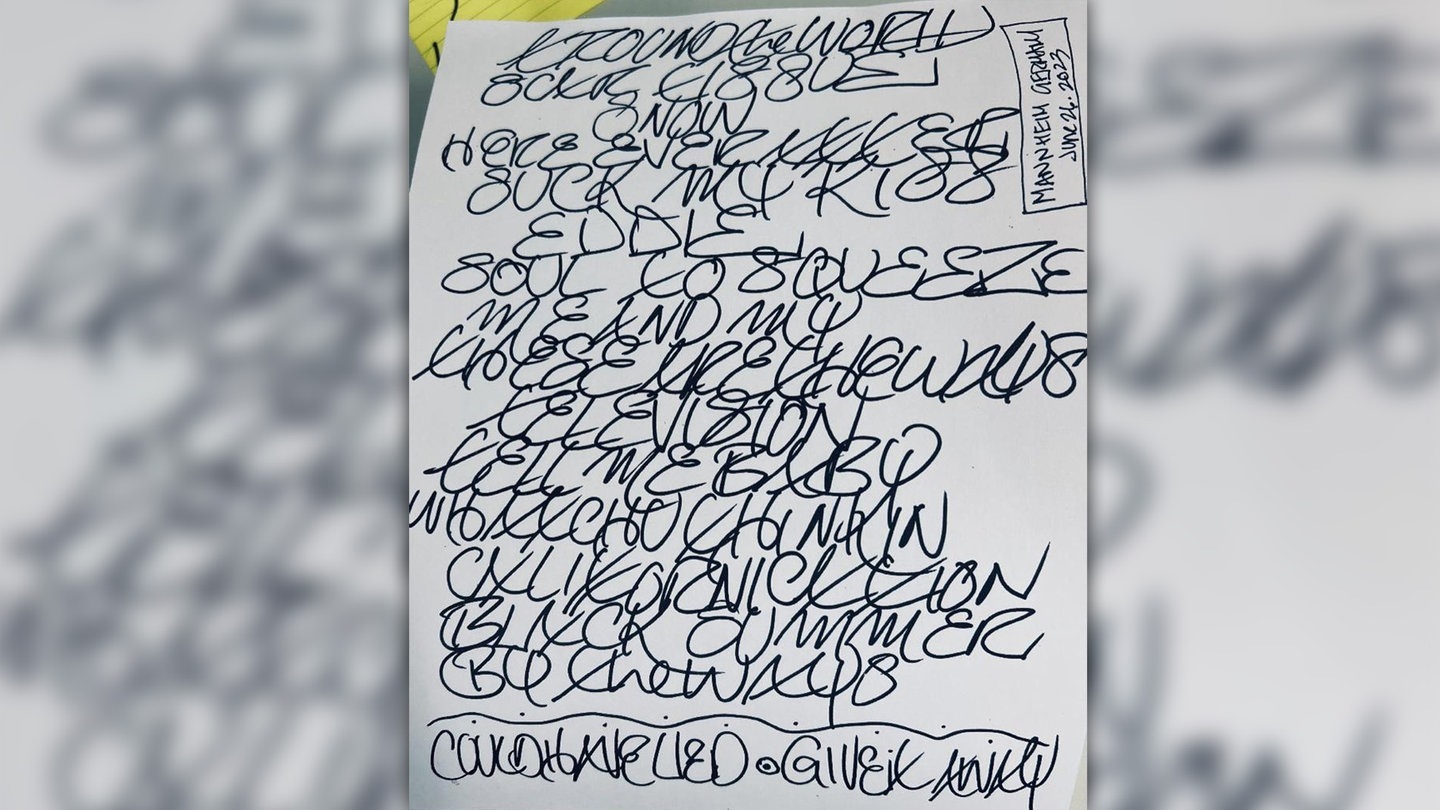 AROUND the WORLD
SCAR TISSUE
SNOW
HERE EVER AFTER
SUCK MY KISS
EDDIE
SOUL TO SQUEEZE
ME AND MY
THESE ARE THE WAYS
TELEVISION
TELL ME BABY
WHATCHU THINKIN
CALIFORNICATION
BLACK SUMMER
BY the WAY
COULD HAVE LIED • GIVE it AWAY
MANNHEIM GERMANY
June 26. 2023